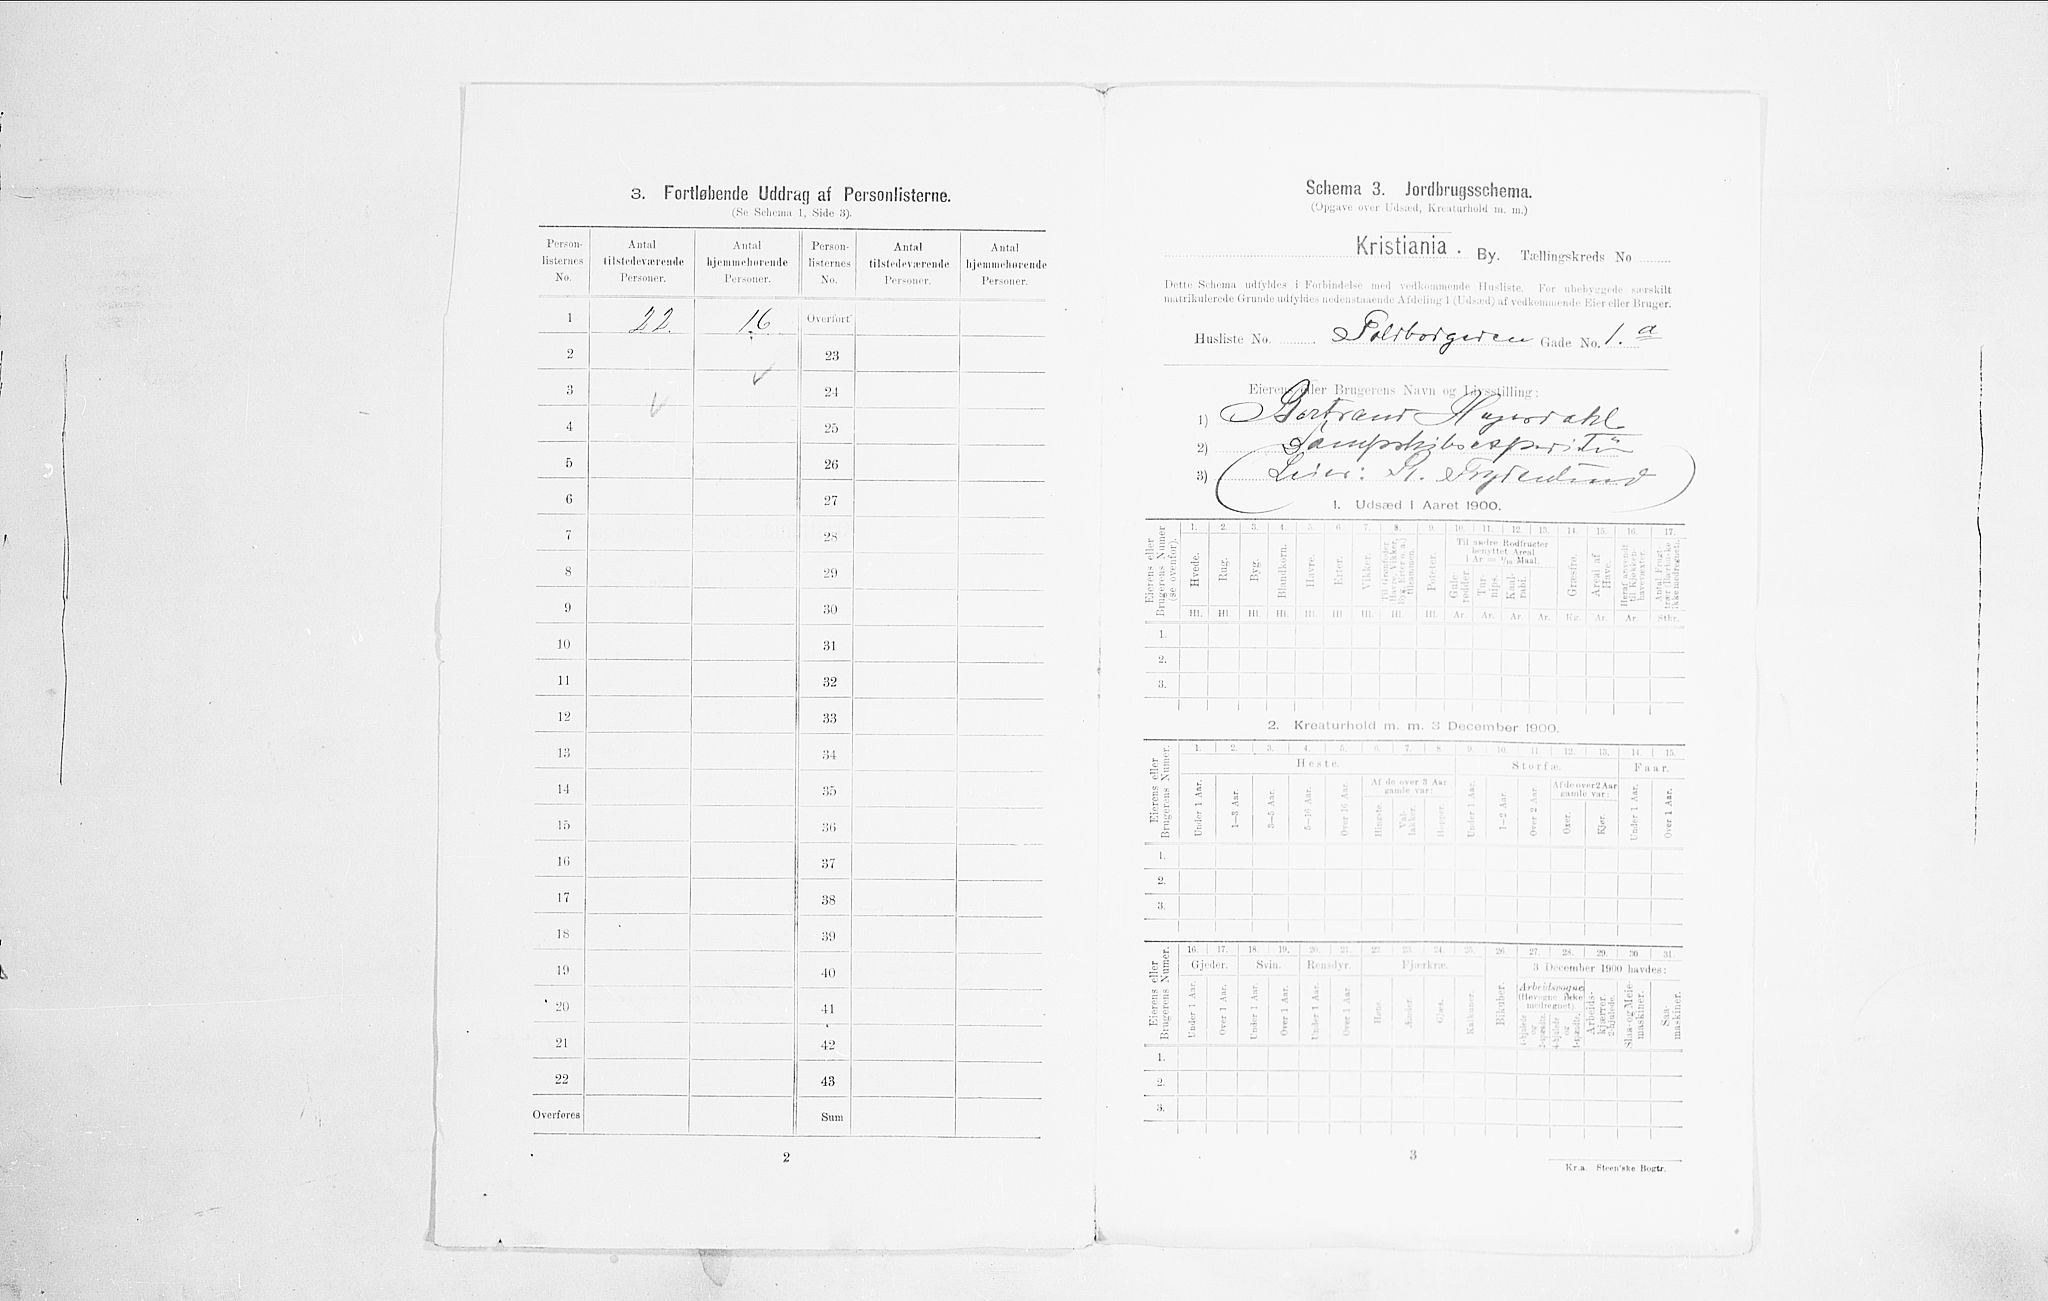 3. Fortløbende Uddrag af Personlisterne.
(Se Schema 1, Side 3).
Person-listernes No. Antal tilstedeværende Personer. Antal hjemmehørende Personer. Person-listernes No. Antal tilstedeværende Personer. Antal hjemmehørende Personer.
1 22. 16 Overført
2 23
3 24
4 25
5 26
6 27
7 28
8 29
9 30
10 31
11 32
12 33
13 34
14 35
15 36
16 37
17 38
18 39
19 40
20 41
21 42
22 43
Overføres Sum
2
Schema 3. Jordbrugsschema.
(Opgave over Udsæd, Kreaturhold m. m.)
Kristiania. By. Tællingskreds No
Dette Schema udfyldes i Forbindelse med vedkommende Husliste. For ubebyggede særskilt
matrikulerede Grunde udfyldes nedenstaaende Afdeling 1 (Udsæd) af vedkommende Eier eller Bruger.
Husliste No. Toldbodgaden Gade No. 1. a
Eierens eller Brugerens Navn og Livsstilling:
1)
2) Dampskibsexpeditør
3) Leier: Frydenlund
1. Udsæd i Aaret 1900.
Eierens eller Brugerens Numer (se ovenfor).
1. 2. 3. 4. 5. 6. 7. 8. 9. 10. 11. 12. 13. 14. 15. 16. 17.
Til andre Rodfrugter benyttet Areal i Ar = 1/10 Maal.
Hvede. Rug. Byg. Blandkorn. Havre. Erter. Vikker. Til Grønfoder Havre, Vikker, Byg, Erter o. a.) tilsammen. Poteter. Gulerødder. Turnips. Kaalrabi. Græsfrø. Areal af Have. Heraf anvendt til Kjøkkenhavevæxter. Antal Frugttrær (Bærbuske ikke medregnet).
Hl. Hl. Hl. Hl. Hl. Hl. Hl. Hl. Hl. Ar. Ar. Ar. Ar. Kg. Ar. Ar. Stkr.
1.
2.
3.
2. Kreaturhold m. m. 3 December 1900.
Eierens eller Brugerens Numer.
1. 2. 3. 4. 5. 6. 7. 8. 9. 10. 11. 12. 13. 14. 15.
Heste. Storfæ. Faar.
Af de over 3 Aar gamle var: Af de over 2 Aar gamle var:
Under 1 Aar. 1—3 Aar. 3—5 Aar. 5—16 Aar. Over 16 Aar. Hingste. Vallakker. Hopper. Under 1 Aar. 1—2 Aar. Over 2 Aar. Oxer. Kjør. Under 1 Aar. Over 1 Aar.
1.
2.
3.
Eierens eller Brugerens Numer.
16. 17. 18. 19. 20. 21. 22. 23. 24. 25. 26. 27. 28. 29. 30. 31.
Gjeder. Svin. Rensdyr. Fjærkræ. 3 December 1900 havdes:
Arbeidsvogne (Høvogne ikke medregnet).
Under 1 Aar. Over 1 Aar. Under 1 Aar. Over 1 Aar. Under 1 Aar. Over 1 Aar. Høns. Ænder. Gjæs. Kalkuner. Bikuber. 4-hjulede og 2-spændte. 4-hjulede og 1-spændte. Arbeidskjærrer 2-hjulede. Slaa- og Meiemaskiner. Saamaskiner.
1.
2.
3.
3
Kr.a. Steen'ske Bogtr.